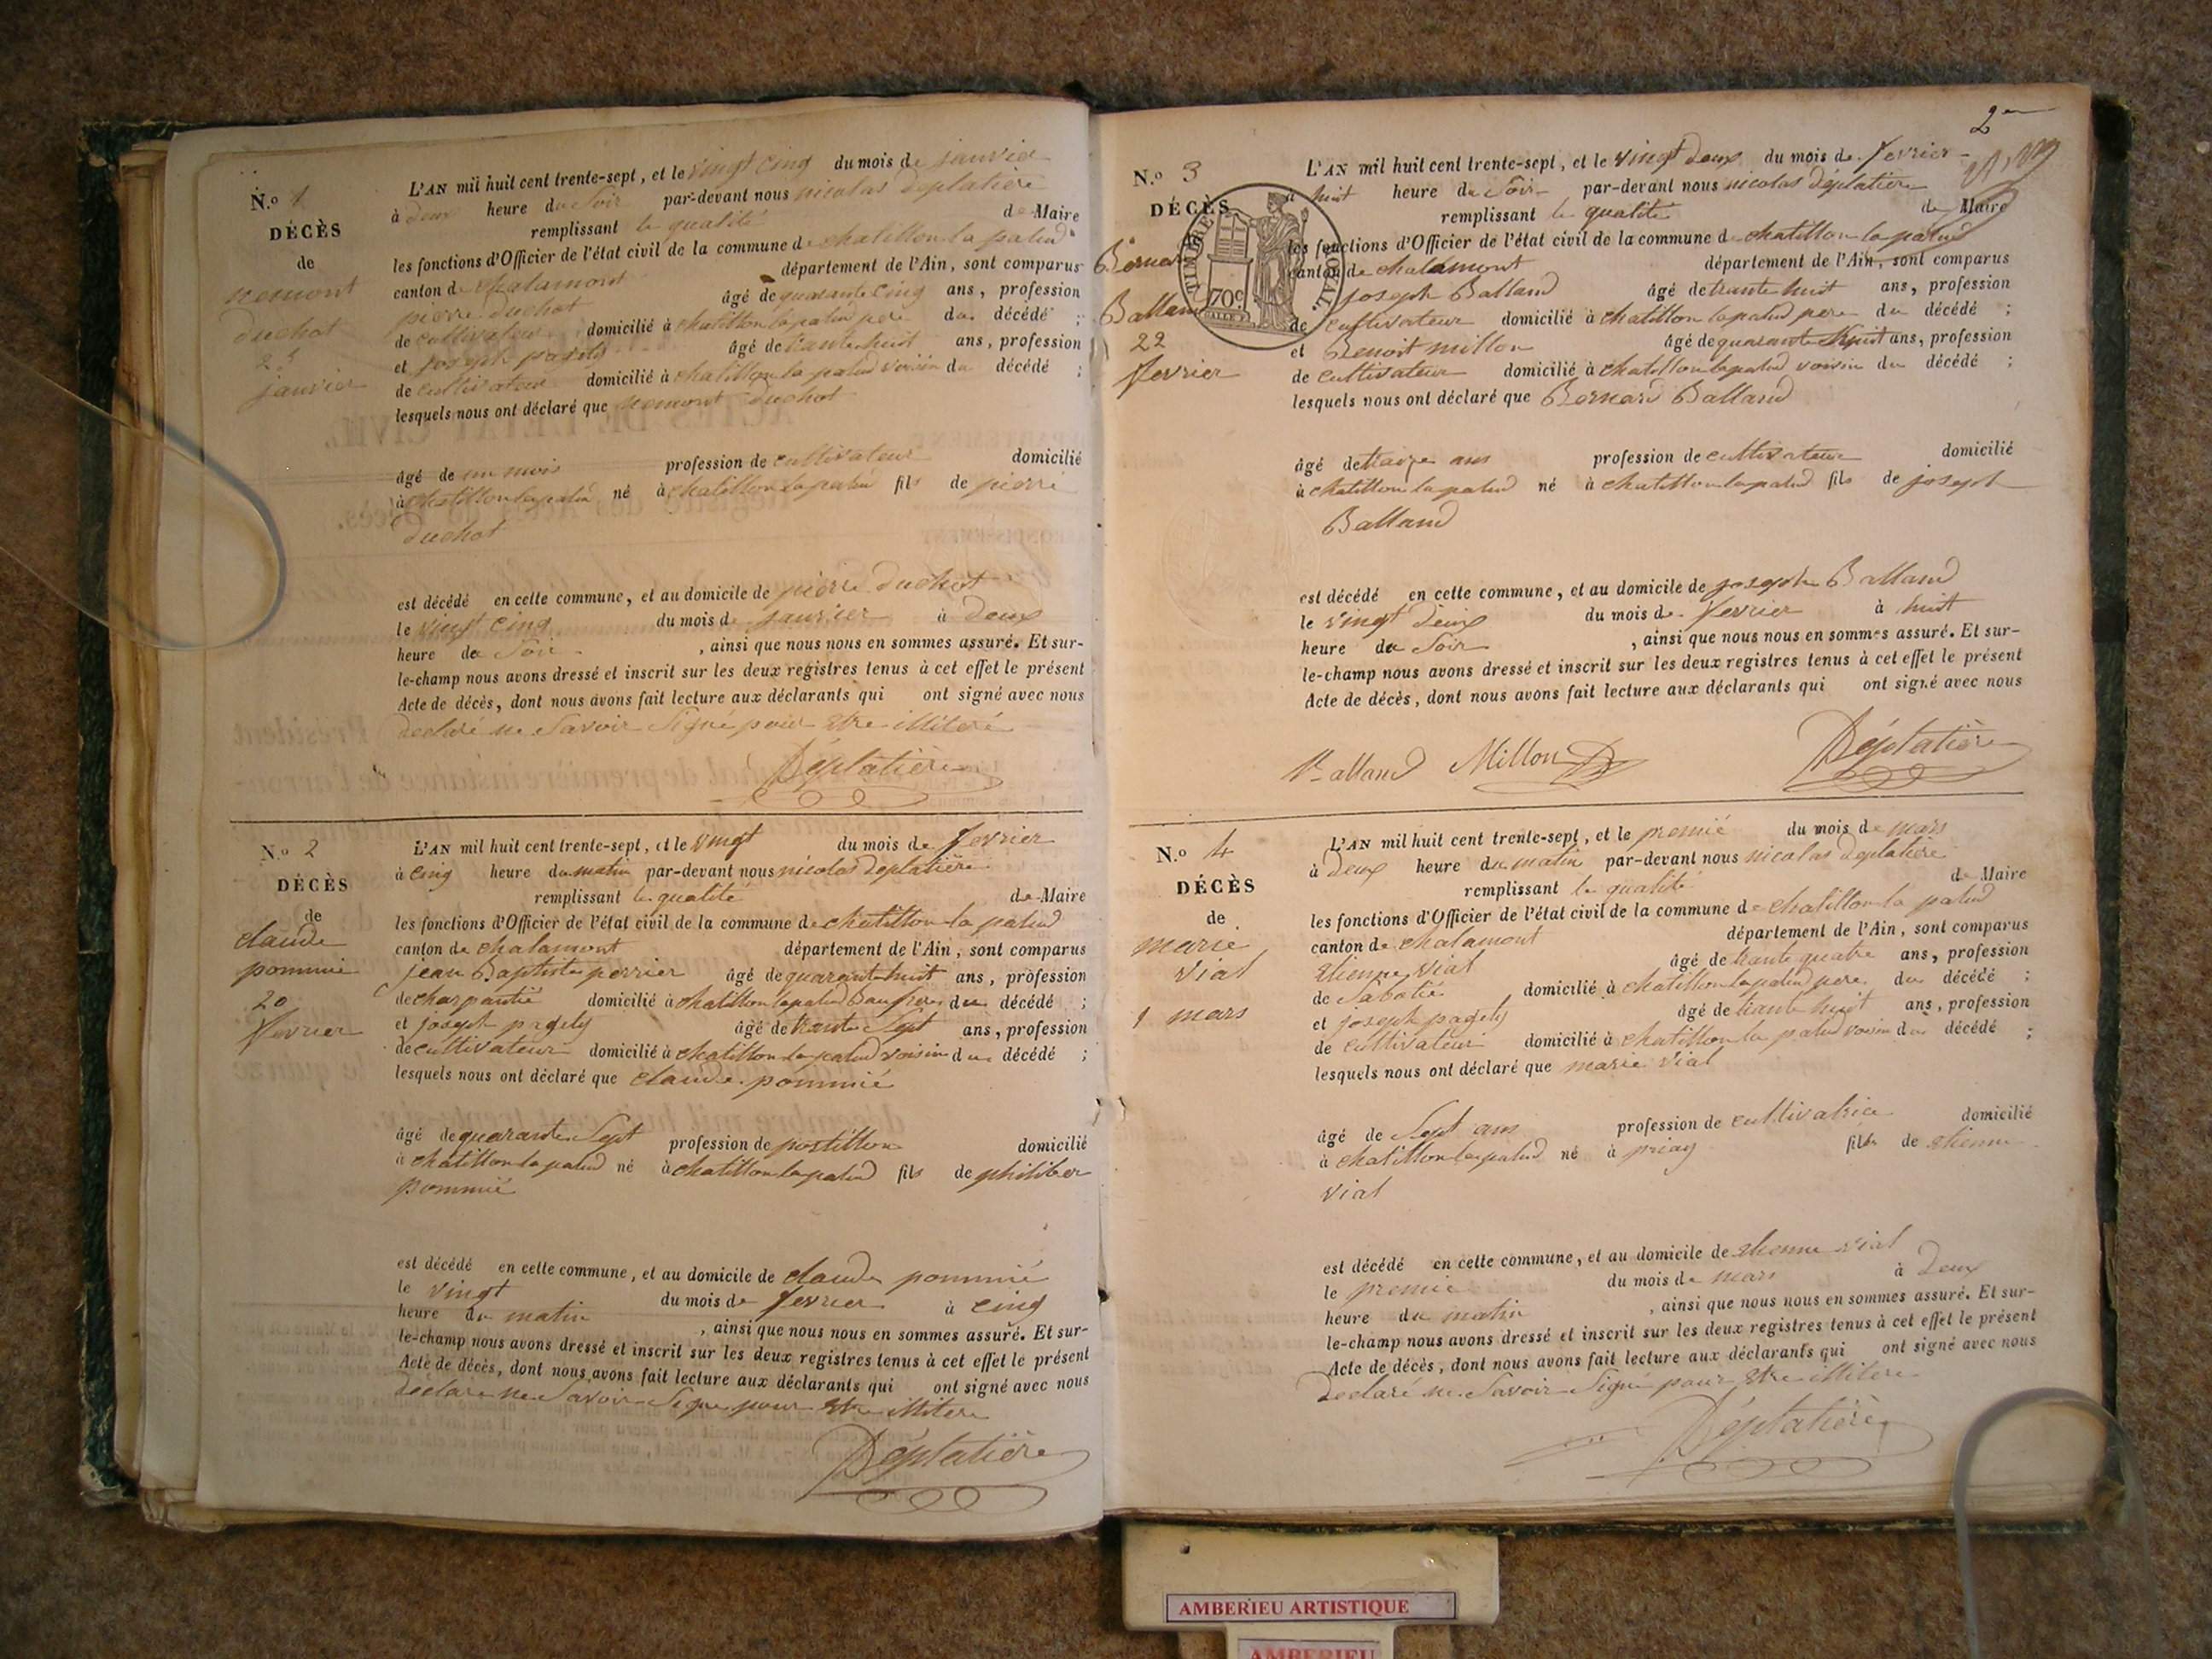 N.o 1
DÉCÈS
de
nemont
duchot
25
janvier
L'AN mil huit cent trente-sept, et le vingt cinq du mois de janvier
à deux heure du Soir par-devant nous nicolas Déplatière
remplissant le qualité de Maire
les fonctions d'Officier de l'état civil de la commune de chatillon la palud
canton de chalamont département de l'Ain, sont comparus
pierre duchot âgé de quarante cinq ans, profession
de cultivateur domicilié à chatillon lapalud pere du décédé ;
et joseph pagely âgé de trante huit ans, profession
de cultivateur domicilié à chatillon la palud voisin du décédé ;
lesquels nous ont déclaré que nemont duchot
âgé de un mois profession de cultivateur domicilié
à chatillon lapalud né à chatillon lapalud fils de pierre
duchot
est décédé en cette commune, et au domicile de pierre duchot
le vingt cinq du mois de janvier à deux
heure du Soir , ainsi que nous nous en sommes assuré. Et sur-
le-champ nous avons dressé et inscrit sur les deux registres tenus à cet effet le présent
Acte de décès, dont nous avons fait lecture aux déclarants qui ont signé avec nous
declaré ne Savoir Signé pour etre illiteré
Déplatière
N.o 2
DÉCÈS
de
claude
pommié
20
fevrier
L'AN mil huit cent trente-sept, et le vingt du mois de fevrier
à cinq heure du matin par-devant nous nicolas Deplatière
remplissant le qualité de Maire
les fonctions d'Officier de l'état civil de la commune de chatillon la palud
canton de chalamont département de l'Ain, sont comparus
jean Baptiste perrier âgé de quarante huit ans, profession
de charpantié domicilié à chatillon lapalud Baufrere du décédé ;
et joseph pagely âgé de trante Sept ans, profession
de cultivateur domicilié à chatillon la palud voisin du décédé ;
lesquels nous ont déclaré que claude pommié
âgé de quarante Sept profession de postillon domicilié
à chatillon lapalud né à chatillon lapalud fils de philiber
pommié
est décédé en cette commune, et au domicile de claude pommié
le vingt du mois de fevrier à cinq
heure du matin , ainsi que nous nous en sommes assuré. Et sur-
le-champ nous avons dressé et inscrit sur les deux registres tenus à cet effet le présent
Acte de décès, dont nous avons fait lecture aux déclarants qui ont signé avec nous
Declare ne Savoir Signe pour etre illitere
Déplatière
2
N.o 3
DÉCÈS
Bernard
Balland
22
fevrier
TIMBRE ROYAL
70c
L'AN mil huit cent trente-sept, et le vingt deux du mois de fevrier
à huit heure du Soir par-devant nous nicolas Déplatière
remplissant le qualité de Maire
les fonctions d'Officier de l'état civil de la commune de chatillon la palud
canton de chalamont département de l'Ain, sont comparus
joseph Balland âgé de trante huit ans, profession
de cultivateur domicilié à chatillon lapalud pere du décédé ;
et Benoit millon âgé de quarante huit ans, profession
de cultivateur domicilié à chatillon lapalud voisin du décédé ;
lesquels nous ont déclaré que Bernard Balland
âgé de traize ans profession de cultivateur domicilié
à chatillon la palud né à chatillon lapalud fils de joseph
Balland
est décédé en cette commune, et au domicile de joseph Balland
le vingt deux du mois de fevrier à huit
heure du Soir , ainsi que nous nous en sommes assuré. Et sur-
le-champ nous avons dressé et inscrit sur les deux registres tenus à cet effet le présent
Acte de décès, dont nous avons fait lecture aux déclarants qui ont signé avec nous
Balland Millon Déplatière
N.o 4
DÉCÈS
de
marie
Vial
1 mars
L'AN mil huit cent trente-sept, et le premié du mois de mars
à deux heure du matin par-devant nous nicolas deplatière
remplissant le qualité de Maire
les fonctions d'Officier de l'état civil de la commune de chatillon la palud
canton de chalamont département de l'Ain, sont comparus
etienne Vial âgé de trante quatre ans, profession
de Sabotié domicilié à chatillon lapalud pere du décédé ;
et joseph pagely âgé de trante huit ans, profession
de cultivateur domicilié à chatillon la palud voisin du décédé ;
lesquels nous ont déclaré que marie Vial
âgé de Sept ans profession de cultivatrice domicilié
à chatillon lapalud né à priay fille de etienne
Vial
est décédé en cette commune, et au domicile de etienne vial
le premié du mois de mars à deux
heure du matin , ainsi que nous nous en sommes assuré. Et sur-
le-champ nous avons dressé et inscrit sur les deux registres tenus à cet effet le présent
Acte de décès, dont nous avons fait lecture aux déclarants qui ont signé avec nous
Declaré ne Savoir Signé pour etre illitere
Déplatière
AMBERIEU ARTISTIQUE
AMBERIEU